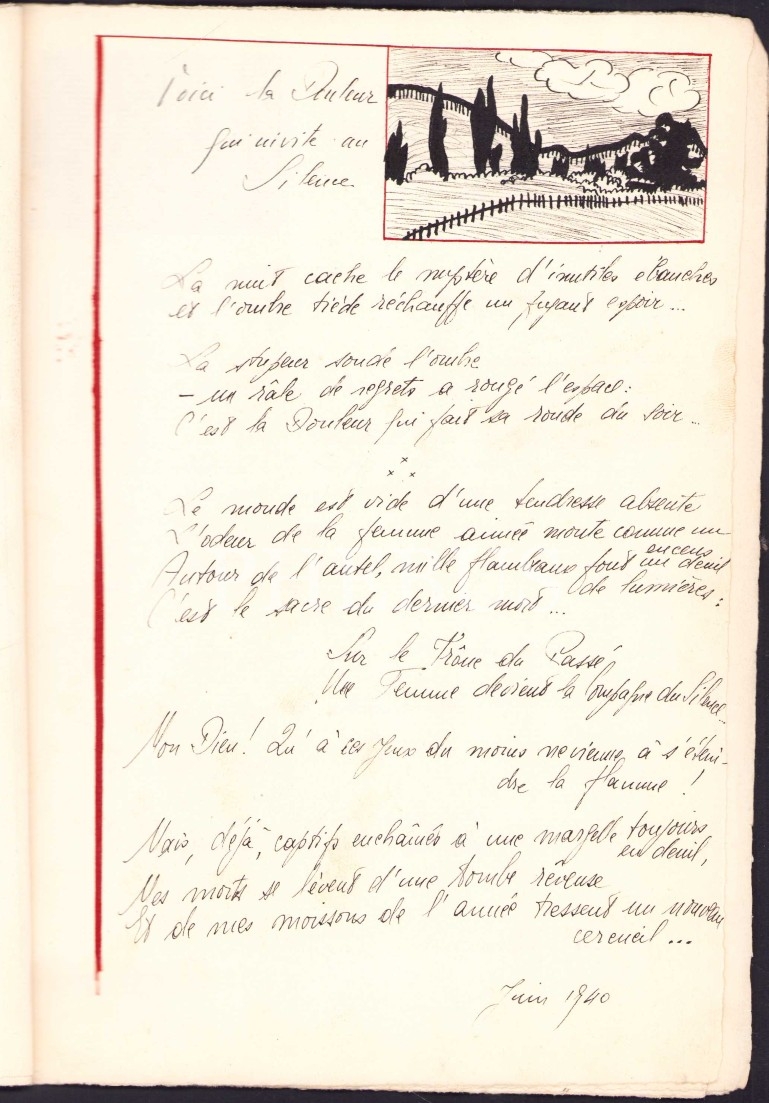 Voici la Douleur
qui invite au
Silence
La nuit cache le mystère d'inutiles ébauches
et l'ombre tiède réchauffe un fuyant espoir...
La stupeur sonde l'ombre
- un râle de regrets a rongé l'espace:
C'est la Douleur qui fait sa ronde du soir...
x
x x
Le monde est vide d'une tendresse absente
L'odeur de la femme aimée monte comme un
encens
Autour de l'autel, mille flambeaux font un deuil
de lumières:
C'est le sacre du dernier mort...
Sur le Trône du Passé
Une Femme devient la Compagne du Silence..
Mon Dieu! Qu'à ces Jeux du moins ne vienne à s'étein-
dre la flamme!
Mais, déjà, captifs enchaînés à une margelle toujours
en deuil,
Mes morts se lèvent d'une tombe rêveuse
Et de mes moissons de l'année tressent un nouveau
cercueil...
Juin 1940